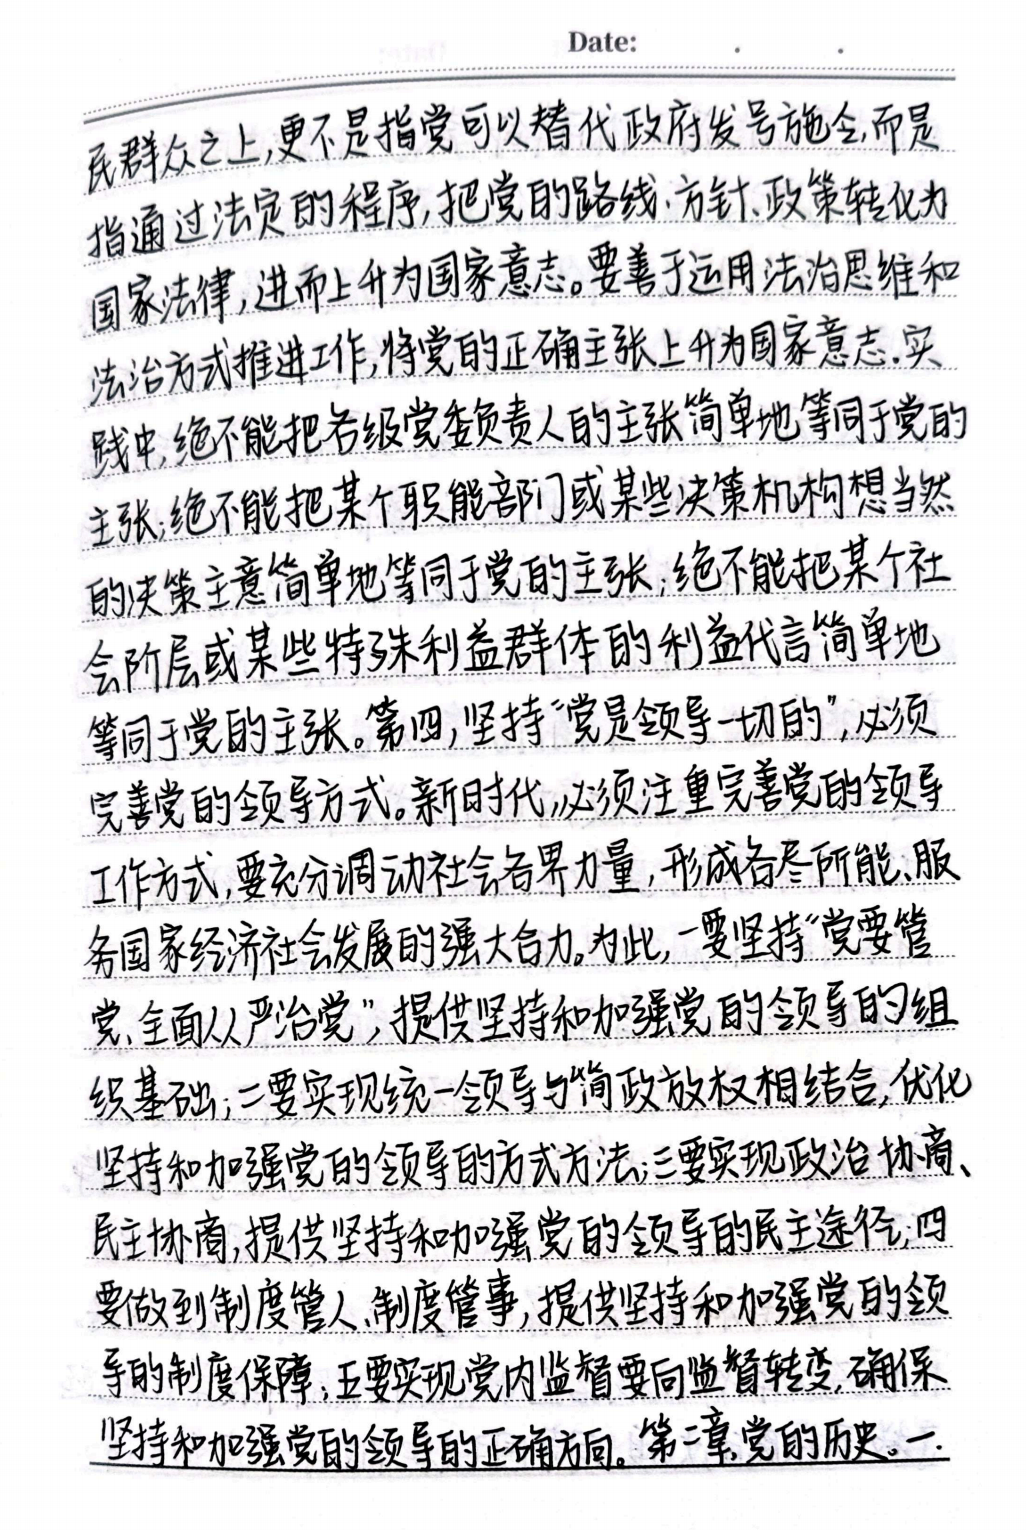 Date: . .
民群众之上,更不是指党可以替代政府发号施令,而是
指通过法定的程序,把党的路线、方针、政策转化为
国家法律,进而上升为国家意志。要善于运用法治思维和
法治方式推进工作,将党的正确主张上升为国家意志.实
践中,绝不能把各级党委负责人的主张简单地等同于党的
主张;绝不能把某个职能部门或某些决策机构想当然
的决策主意简单地等同于党的主张;绝不能把某个社
会阶层或某些特殊利益群体的利益代言简单地
等同于党的主张。第四,坚持“党是领导一切的”,必须
完善党的领导方式。新时代,必须注重完善党的领导
工作方式,要充分调动社会各界力量,形成各尽所能、服
务国家经济社会发展的强大合力。为此,一要坚持“党要管
党、全面从严治党”,提供坚持和加强党的领导的组
织基础;二要实现统一领导与简政放权相结合,优化
坚持和加强党的领导的方式方法;三要实现政治协商、
民主协商,提供坚持和加强党的领导的民主途径;四
要做到制度管人、制度管事,提供坚持和加强党的领
导的制度保障;五要实现党内监督要向监督转变,确保
坚持和加强党的领导的正确方向。第二章,党的历史。一.